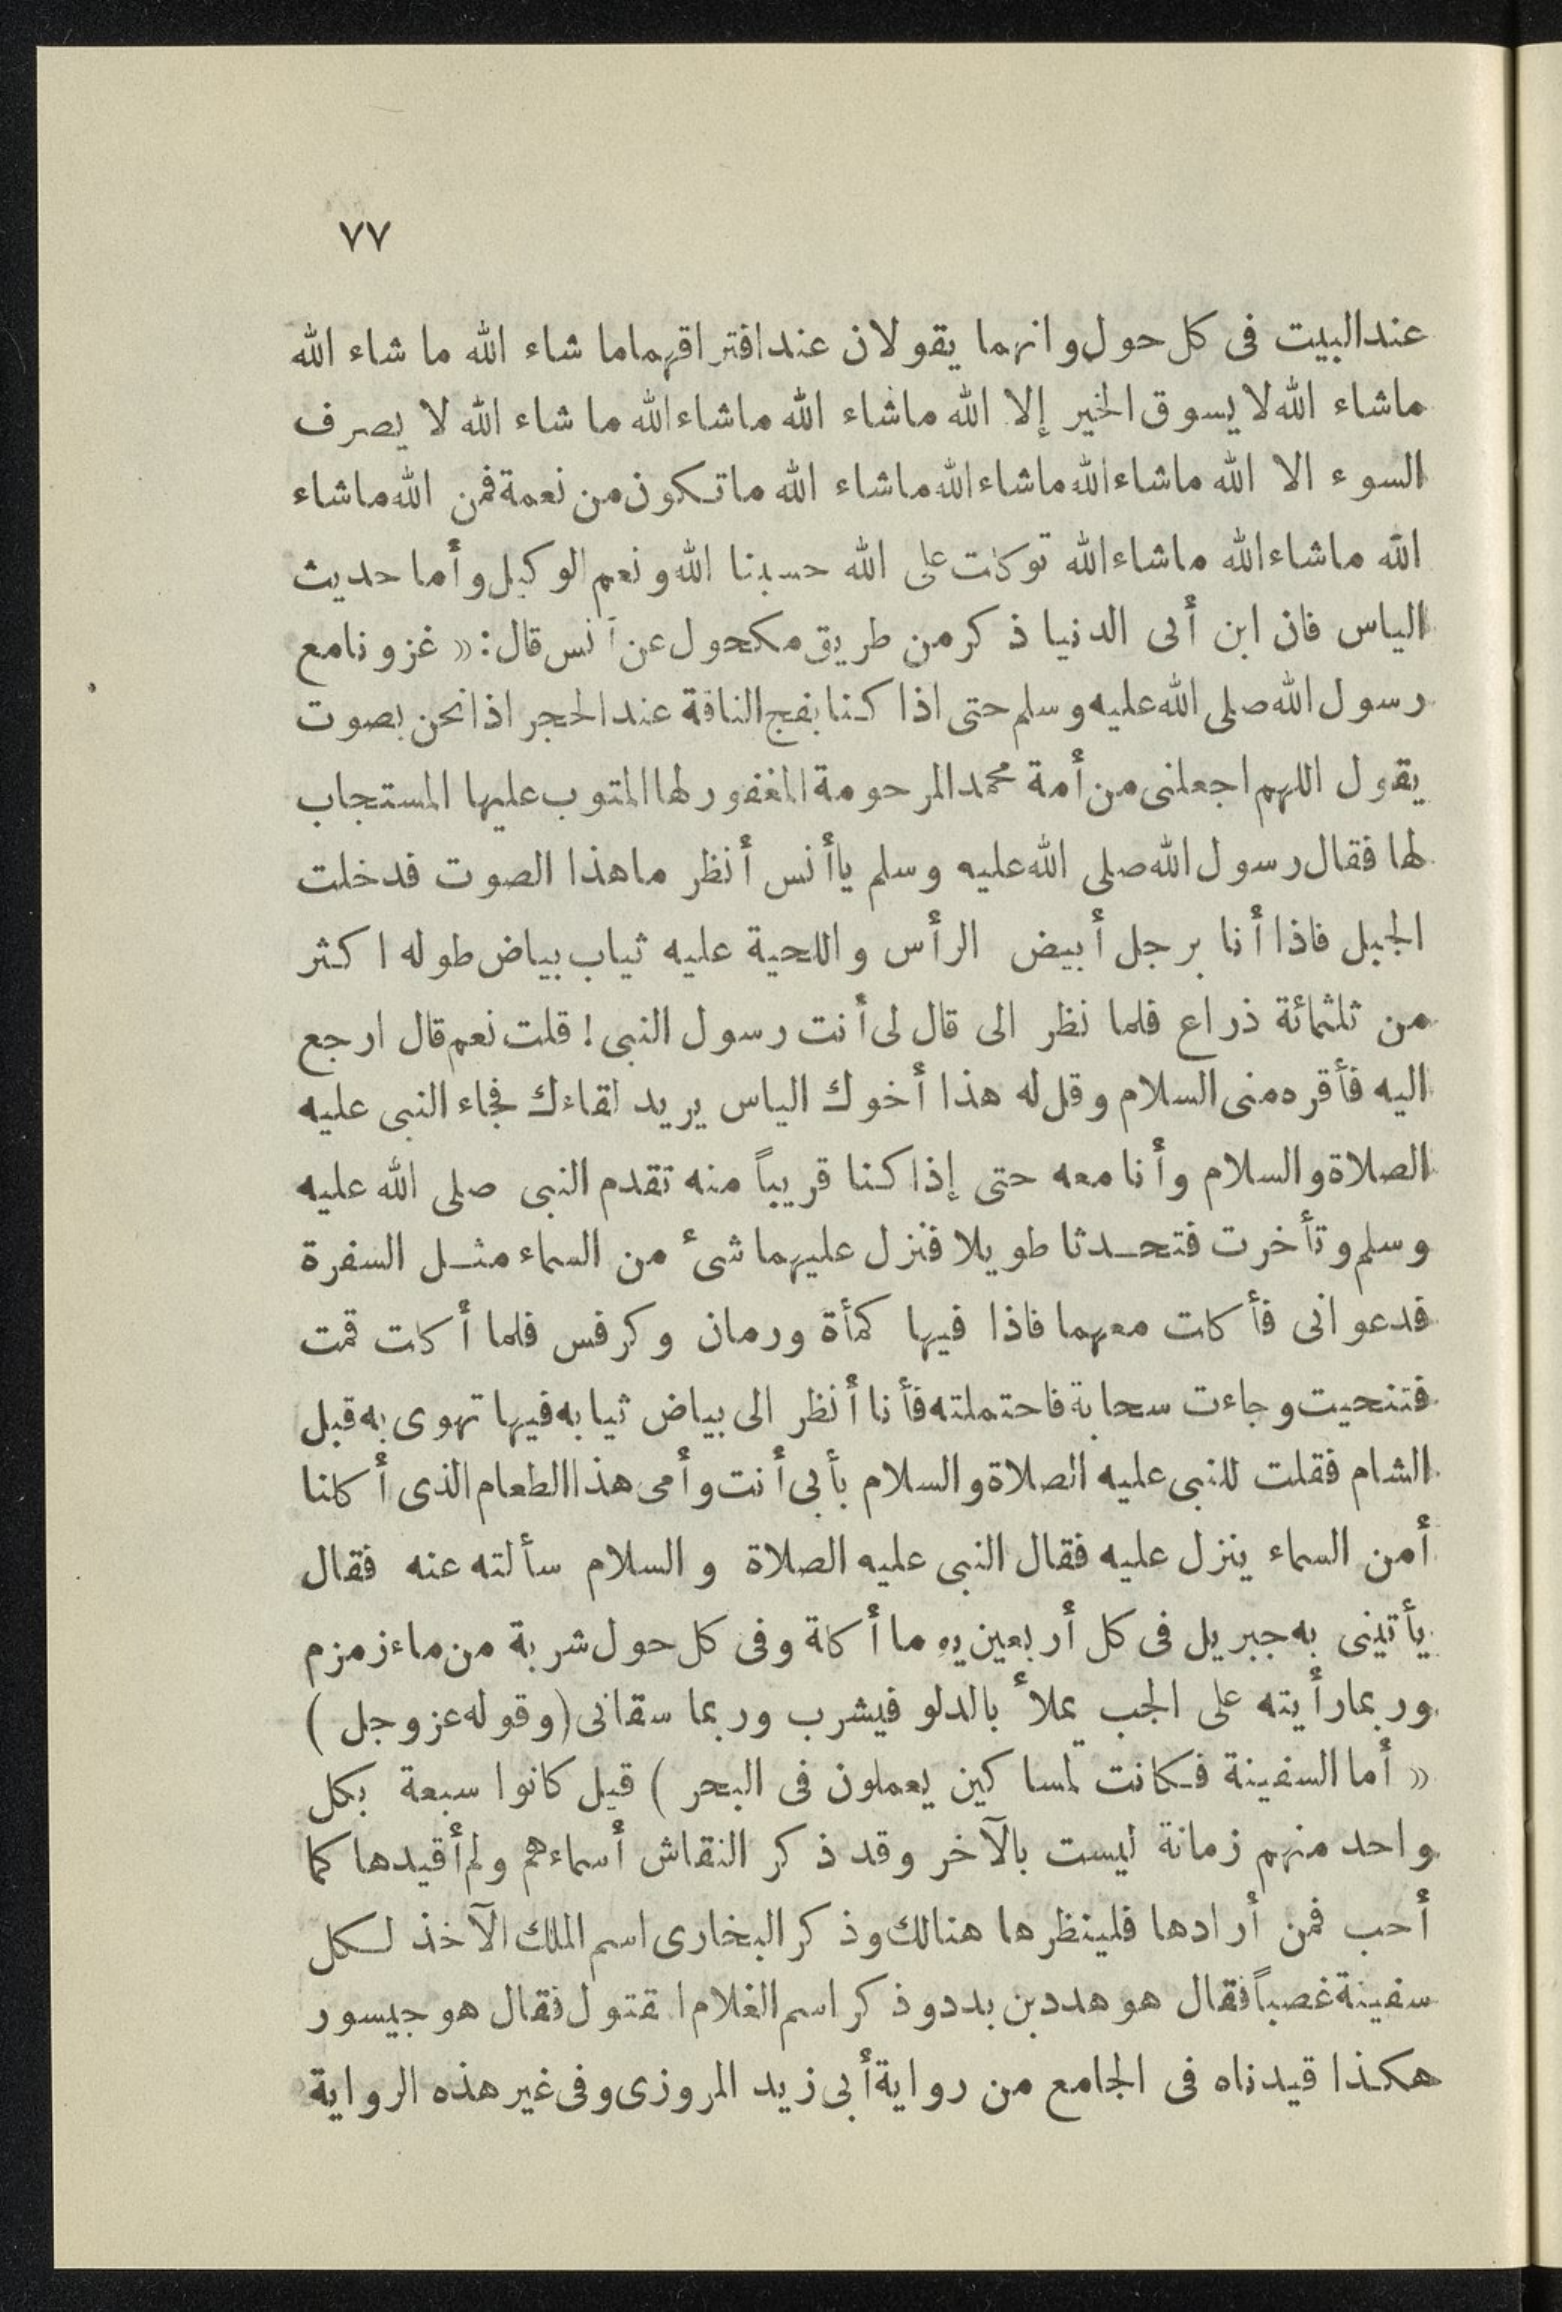 ٧٧
عند البيت فى كل حول وانهما يقولان عند افتراقهما ما شاء الله ما شاء الله
ماشاء الله لا يسوق الخير إلا الله ماشاء الله ماشاء الله ما شاء الله لا يصرف
السوء الا الله ماشاء الله ماشاء الله ماشاء الله ماتكون من نعمة فمن الله ماشاء
الله ماشاء الله ماشاء الله توكلت على الله حسبنا الله ونعم الوكيل وأما حديث
الياس فان ابن أبى الدنيا ذكر من طريق مكحول عن أنس قال: « غزونا مع
رسول الله صلى الله عليه وسلم حتى اذا كنا بفج الناقة عند الحجر اذا نحن بصوت
يقول اللهم اجعلنى من أمة محمد المرحومة المغفور لها المتوب عليها المستجاب
لها فقال رسول الله صلى الله عليه وسلم ياأنس أنظر ماهذا الصوت فدخلت
الجبل فاذا أنا برجل أبيض الرأس واللحية عليه ثياب بياض طوله اكثر
من ثلثمائة ذراع فلما نظر الى قال لى أنت رسول النبى ! قلت نعم قال ارجع
اليه فأقره منى السلام وقل له هذا أخوك الياس يريد لقاءك فجاء النبى عليه
الصلاة والسلام وأنا معه حتى إذا كنا قريباً منه تقدم النبى صلى الله عليه
وسلم وتأخرت فتحدثا طويلا فنزل عليهما شىء من السماء مثل السفرة
فدعوانى فأكلت معهما فاذا فيها كمأة ورمان وكرفس فلما أكلت قمت
فتنحيت وجاءت سحابة فاحتملته فأنا أنظر الى بياض ثيابه فيها تهوى به قبل
الشام فقلت للنبى عليه الصلاة والسلام بأبى أنت وأمى هذا الطعام الذى أكلنا
أمن السماء ينزل عليه فقال النبى عليه الصلاة والسلام سألته عنه فقال
يأتينى به جبريل فى كل أربعين يوما أكلة وفى كل حول شربة من ماء زمزم
وربما رأيته على الجب يملأ بالدلو فيشرب وربما سقانى (وقوله عز وجل )
« أما السفينة فكانت لمساكين يعملون فى البحر ) قيل كانوا سبعة بكل
واحد منهم زمانة ليست بالآخر وقد ذكر النقاش أسماءهم ولم أقيدها كما
أحب فمن أرادها فلينظرها هنالك وذكر البخارى اسم الملك الآخذ لكل
سفينة غصباً فقال هو هدد بن بدد وذكر اسم الغلام المقتول فقال هو جيسور
هكذا قيدناه فى الجامع من رواية أبى زيد المروزى وفى غير هذه الرواية